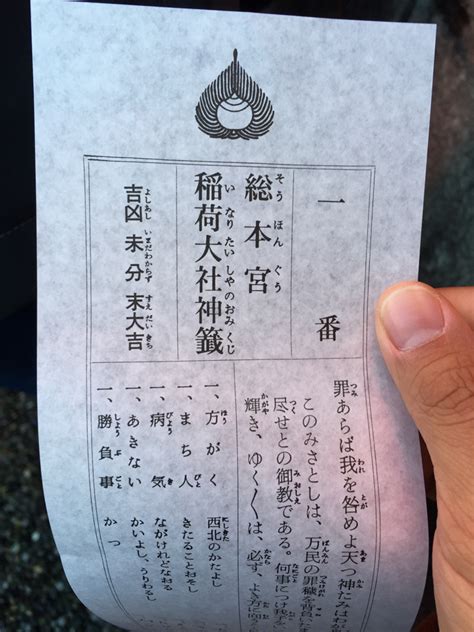 一番
総本宮
稲荷大社神籤
吉凶未分末大吉
罪あらば我を咎めよ天つ神
このみさとしは、万民の罪穢を背負い
尽せとの御教である。何事につけ
輝き、ゆく〱は、必ず、よき方に向
一、方がく 西北のかたよし
一、まち人 きたることおそし
一、病気 ながけれどなおる
一、あきない かいよし、うりわるし
一、勝負事 かつ